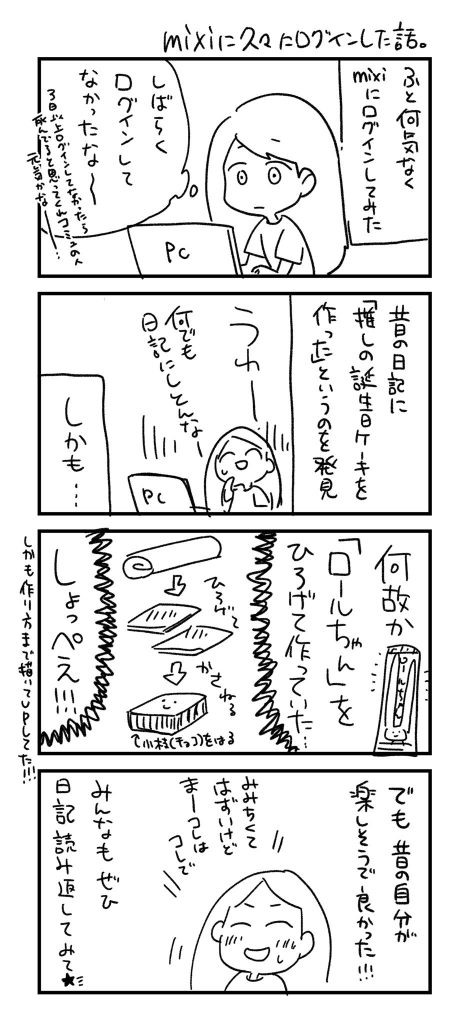 mixiに久々にログインした話。
ふと何気なく
mixiにログインしてみた
しばらく
ログインして
なかったな〜
3日以上ログインしてなかったら
死んでると思ってくれコミュの人
元気かな……
PC
昔の日記に
「推しの誕生日ケーキを
作った」というのを発見
うわー
何でも
日記にしとんな
PC
しかも…
何故か
「ロールちゃん」を
ひろげて作っていた…
ロールちゃん
ひろげて
かさねる
↑小枝(チョコ)をはる
しょっぺえ!!!
しかも作り方まで描いてUPしてた!!!
でも昔の自分が
楽しそうで良かった!!!
みみちくて
はずいけど
まーコレは
コレで
みんなもぜひ
日記読み返してみて★